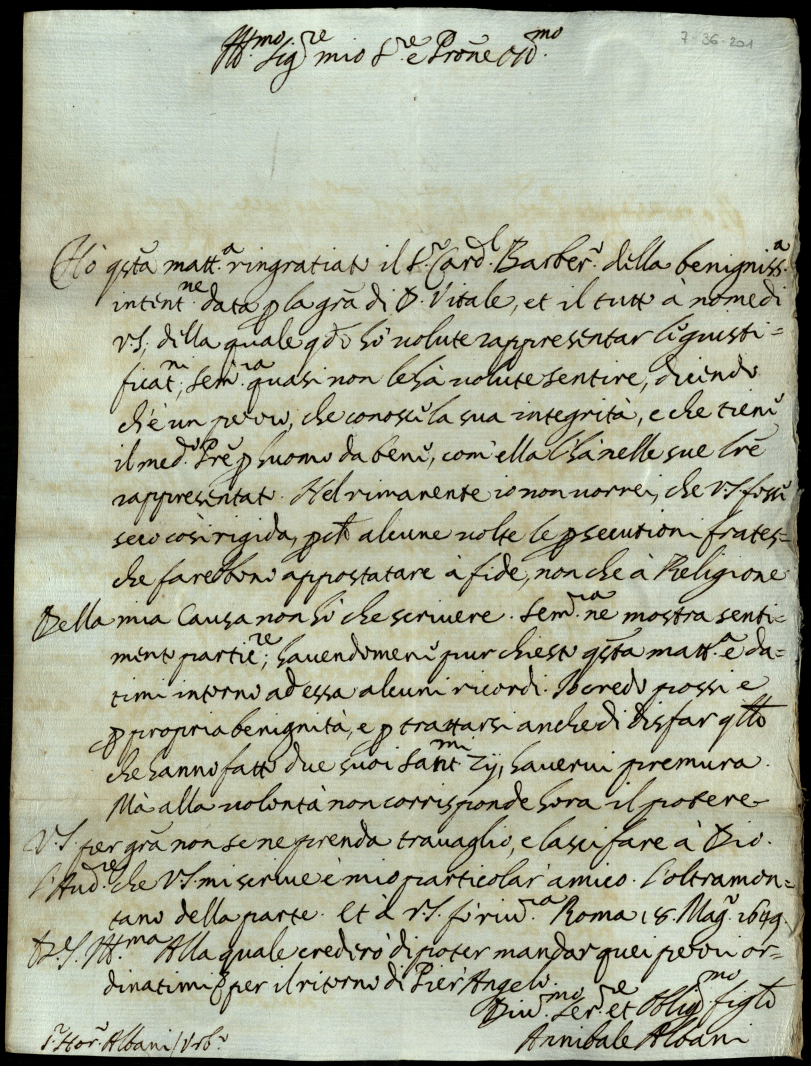 7-36-201
Ill.mo Sig.re mio S.re e Prōne Col.mo
Hò q̃sta matt.a ringratiato il S.r Card.l Barber.i della benigniss.a
intent.ne data p la grā di D. Vitale, et il tutto à nome di
V.S., della quale q̃do hò volute rappresentar le giusti=
ficat.ni, Sem.ria quasi non le hà volute sentire, dicendo
ch'è un pezzo, che conosce la sua integrità, e che tiene
il med.o Prē p huomo da bene, com'ella l'hà nelle sue lr̄e
rappresentato. Nel rimanente io non vorrei, che V.S. fosse
seco così rigida, p̃che alcune volte le p̱secutioni frates=
che farebbono appostatare à fide, non che à Religione
Della mia Causa non hò che scrivere. Sem.ria ne mostra senti=
mento partic.re; havendomene pur chiesto q̃sta matt.a e da=
timi intorno ad essa alcuni ricordi. Io credo possi e
p propria benignità, e p trattarsi anche di disfar q̃llo
che hanno fatto due suoi Sant.mi Zij, havervi premura.
Mà alla volontà non corrisponde hora il potere
V.S. per grā non se ne prenda travaglio, e lasci fare à Dio.
L'Aud.re che V.S. mi scrive è mio particolar' amico. L'oltramon=
tano della parte. Et à V.S. fò riv.a Roma 18. Mag.o 1649.
D.V.S. Ill.ma Alla quale crederò di poter mandar quei pezzi or=
dinatimi per il ritorno di Pier'Angelo.
Div.mo Ser.re et Oblig.mo figlo
Annibale Albani
S.r Hor.o Albani / Urb.o